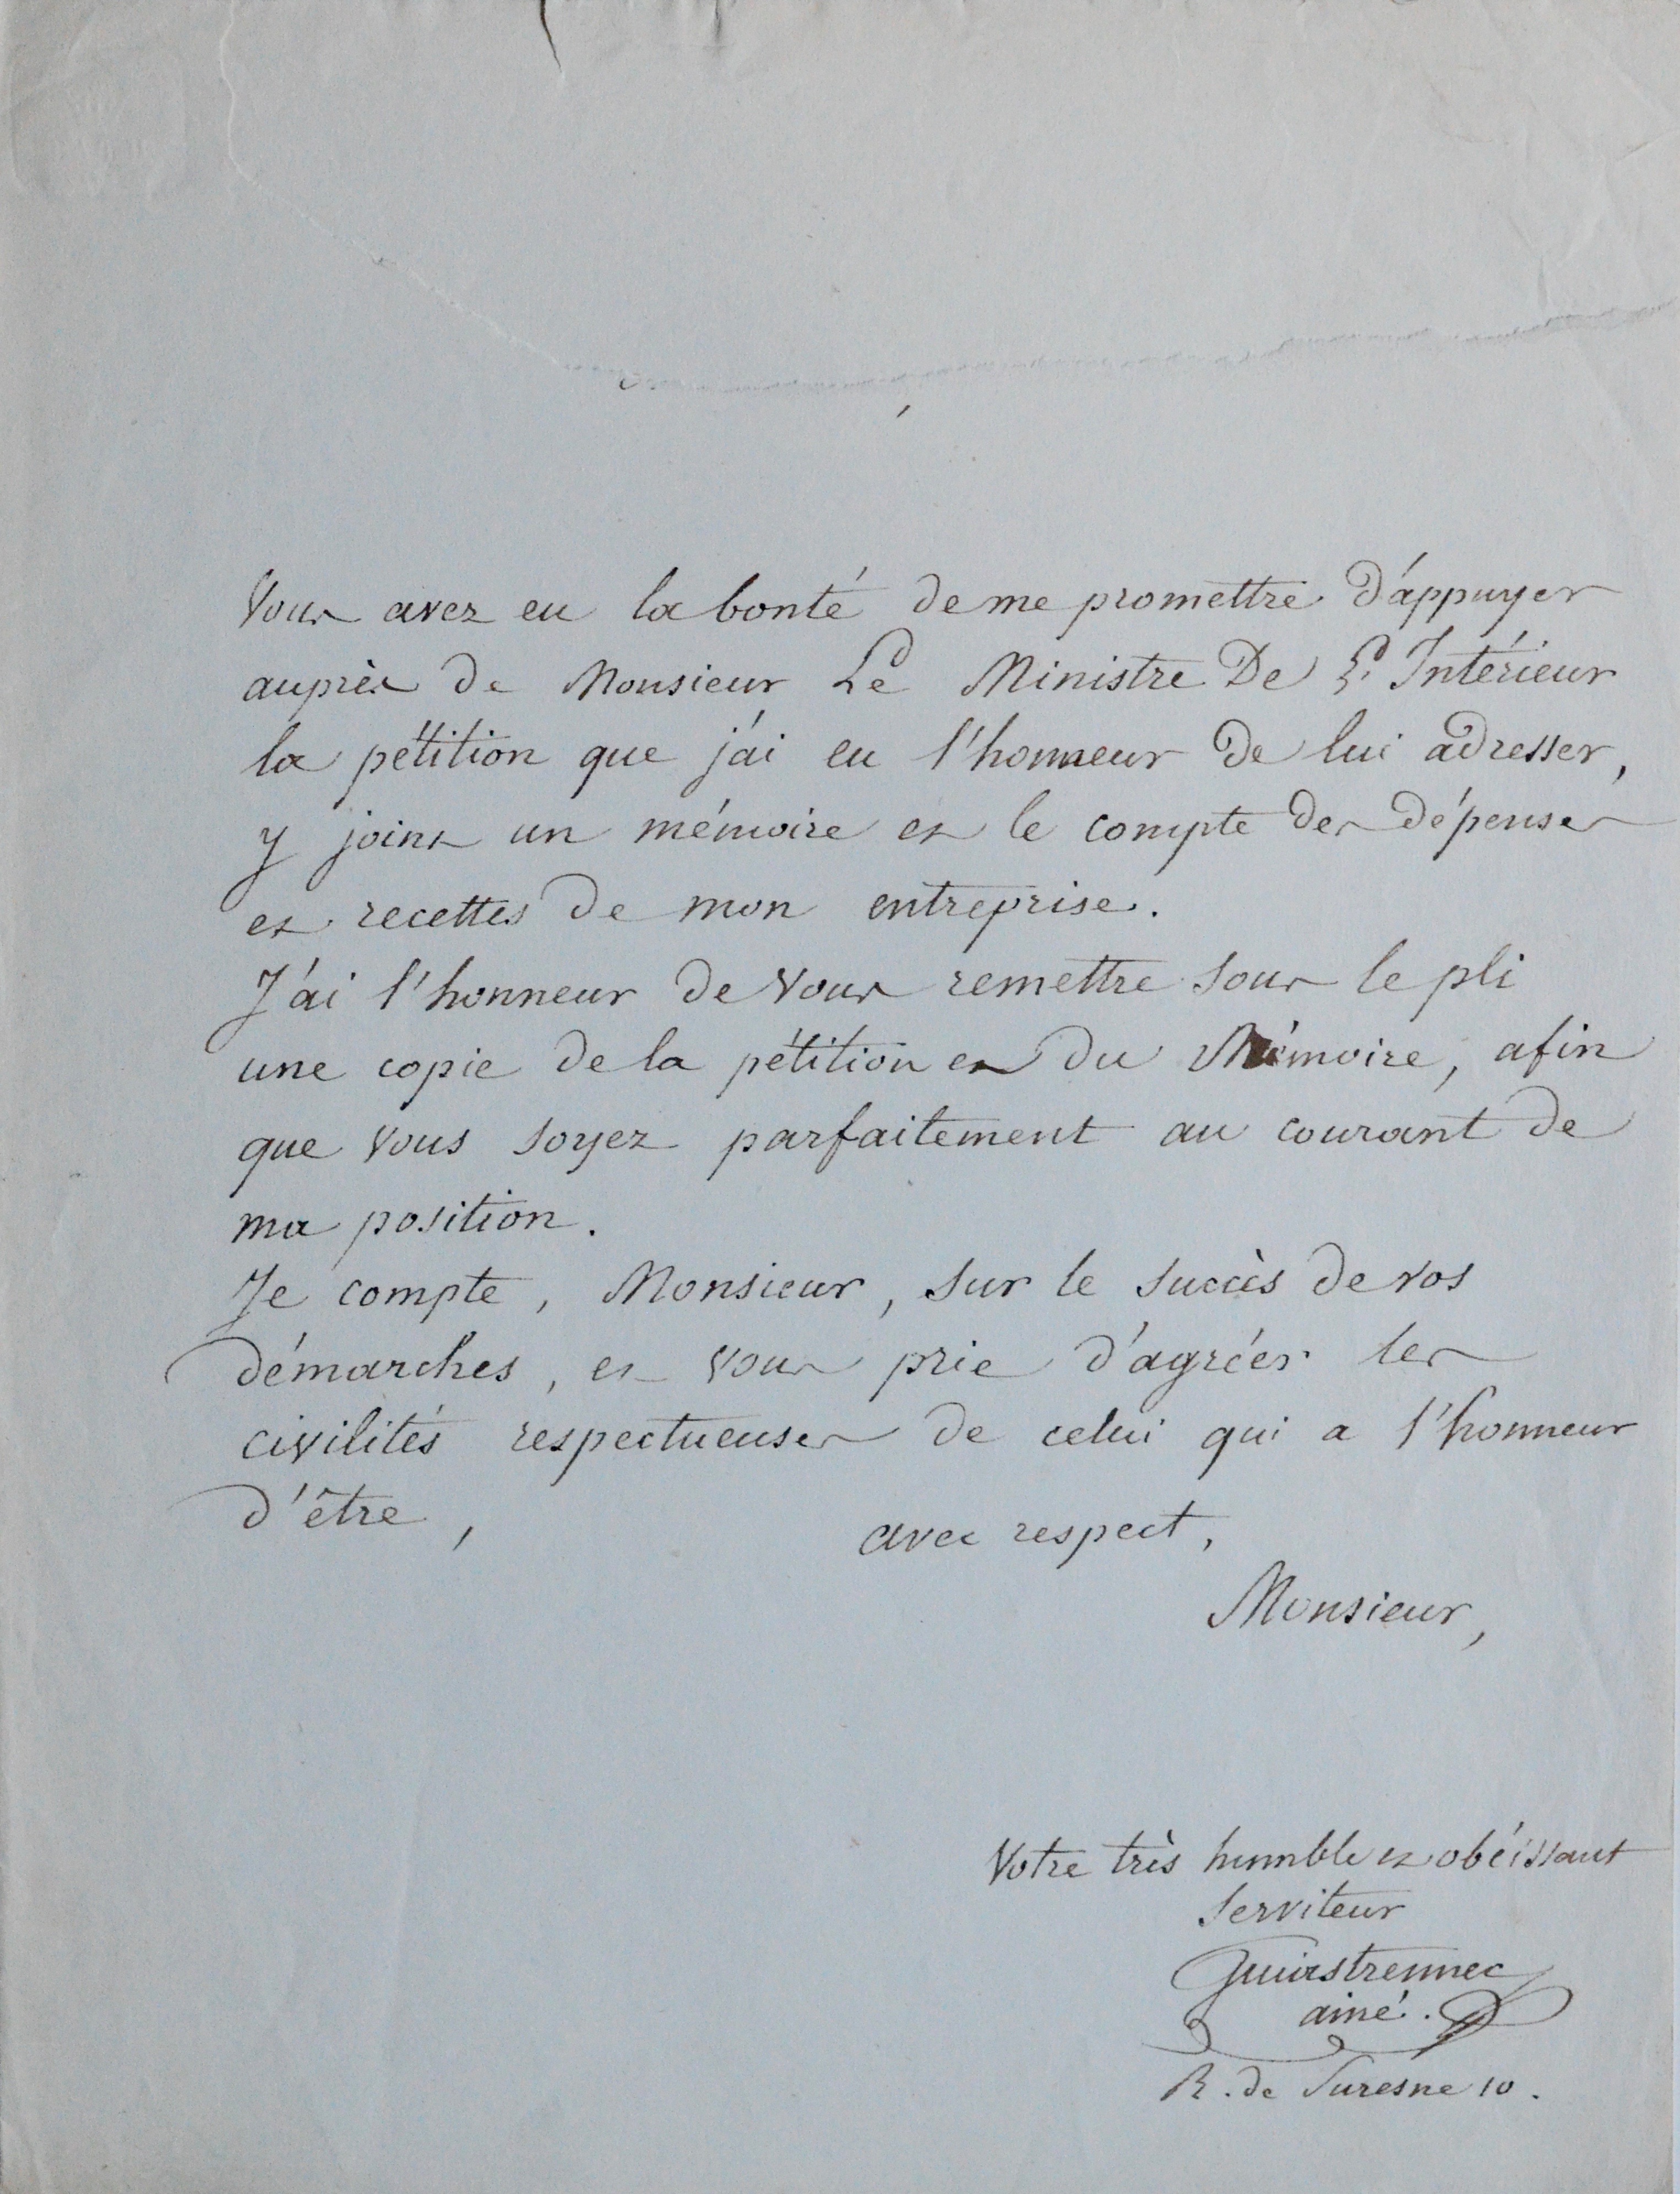 Vous avez eu la bonté de me promettre d'appuyer
auprès de Monsieur Le Ministre De L'Intérieur
la pétition que j'ai eu l'honneur de lui adresser,
y joint un mémoire et le compte des dépenses
et recettes de mon entreprise.
J'ai l'honneur de vous remettre sous le pli
une copie de la pétition et du Mémoire, afin
que vous soyez parfaitement au courant de
ma position.
Je compte, Monsieur, sur le succès de vos
démarches, et vous prie d'agréer les
civilités respectueuses de celui qui a l'honneur
d'être,
avec respect,
Monsieur,
Votre très humble et obéissant
Serviteur
ainé.
R. de Suresne 10.